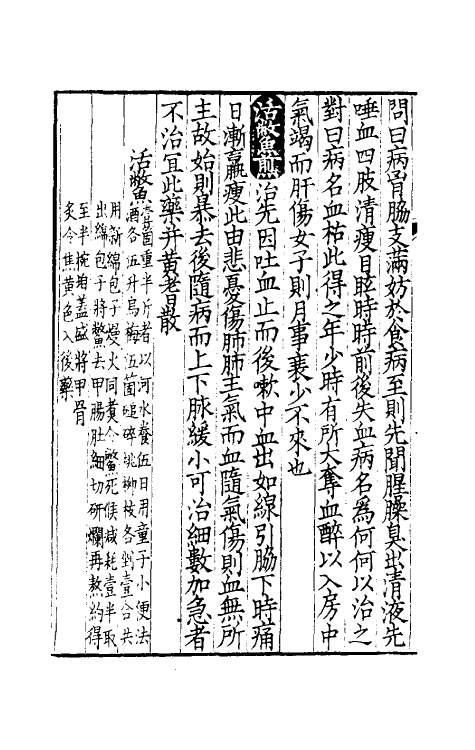 問曰病胷脇支滿妨於食病至則先聞腥臊臭出清液先
唾血四肢清瘦目眩時時前後失血病名為何何以治之
對曰病名血枯此得之年少時有所大奪血醉以入房中
氣竭而肝傷女子則月事衰少不來也
活鱉魚煎治先因吐血止而後嗽中血出如線引脇下時痛
日漸羸瘦此由悲憂傷肺肺主氣而血隨氣傷則血無所
主故始則暴去後隨病而上下脉緩小可治細數加急者
不治宜此藥并黃耆散
活鱉
壹箇重半斤者以河水養伍日用童子小便法
酒各伍升烏梅伍箇磓碎桃柳枝各剉壹合共
用新綿包子慢火同煑令鱉死候減耗壹半取
出綿包子將鱉去甲腸肚細切研爛再熬約得
至半椀珀蓋盛將甲骨
炙令焦黃色入後藥